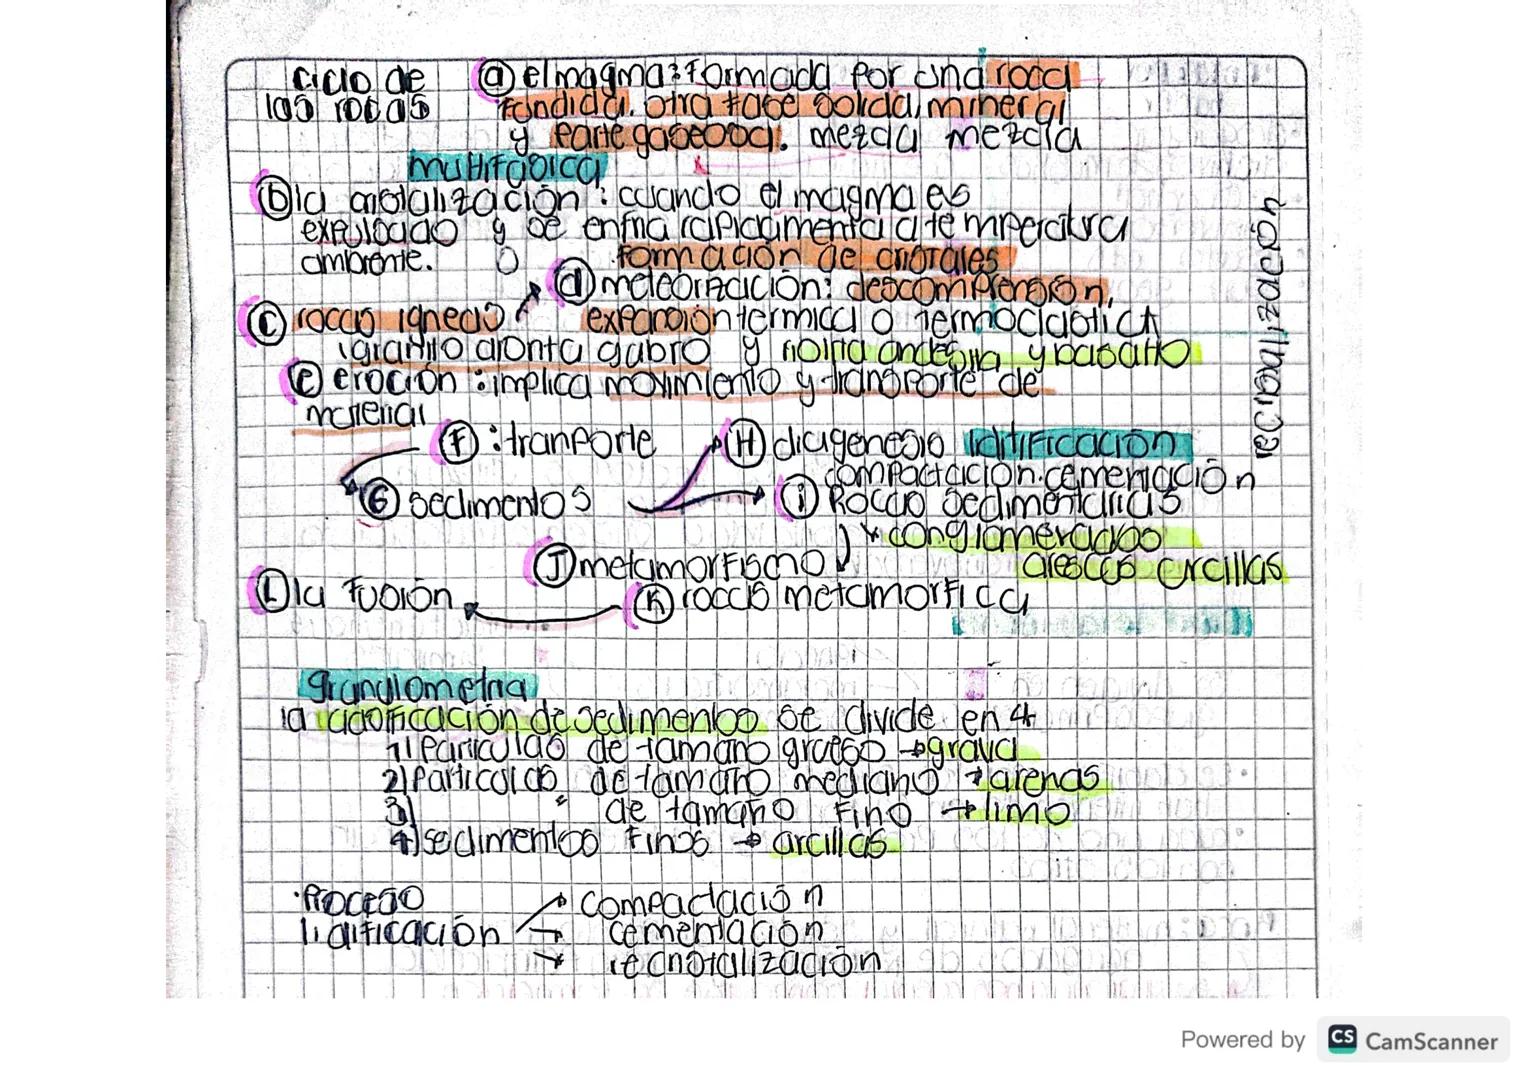 ciclo de
las rocas
a el magma: formada por una roca
fundida, otra fase solida, mineral
y parte gaseosa. mezcla mezcla
multifasica
b la cristalización: cuando el magma es
expulsado y se enfria rapidamenta a temperatura
ambiente.
formación de cristales
d meteorización: descompresión,
c rocas igneas expansion termica o termoclastica
granito gabro y andesita y basalto
e eroción: implica movimiento y transporte de
material
F: tranporte
H diagenesis
compactacion.cementación
recristalización
G sedimentos
i Rocas sedimentarias
conglomerados
arcillas
J metamorfismo
L la fusión
K rocas metamorfica
Granulometria
la clasificación de sedimentos se divide en 4
1) Particulas de tamaño grueso → grava
2) Particulas de tamaño mediano → arenas
3) " de tamaño Fino → limo
4) sedimentos Finos → arcillas
· Proceso
compactación
cementación
recristalización
Powered by CS CamScanner